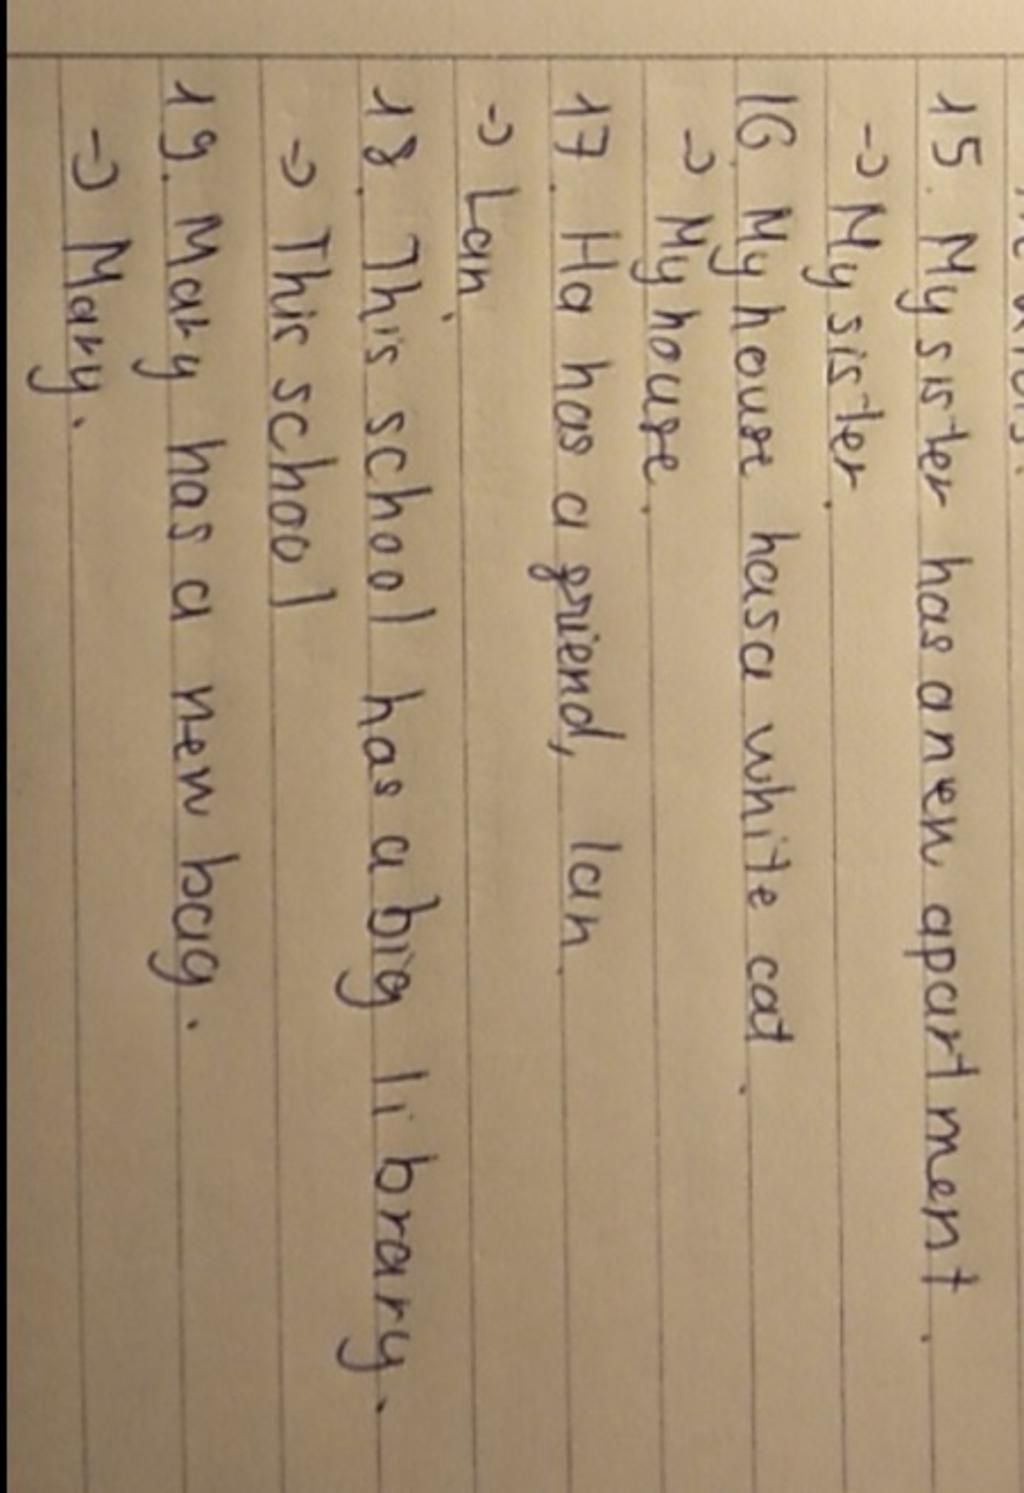 15. My sister has a new apartment.
-> My sister.
16 My house has a white cat.
-> My house.
17. Ha has a friend, lan.
-> Lan.
18. This school has a big library.
-> This school
19. Mary has a new bag.
-> Mary.